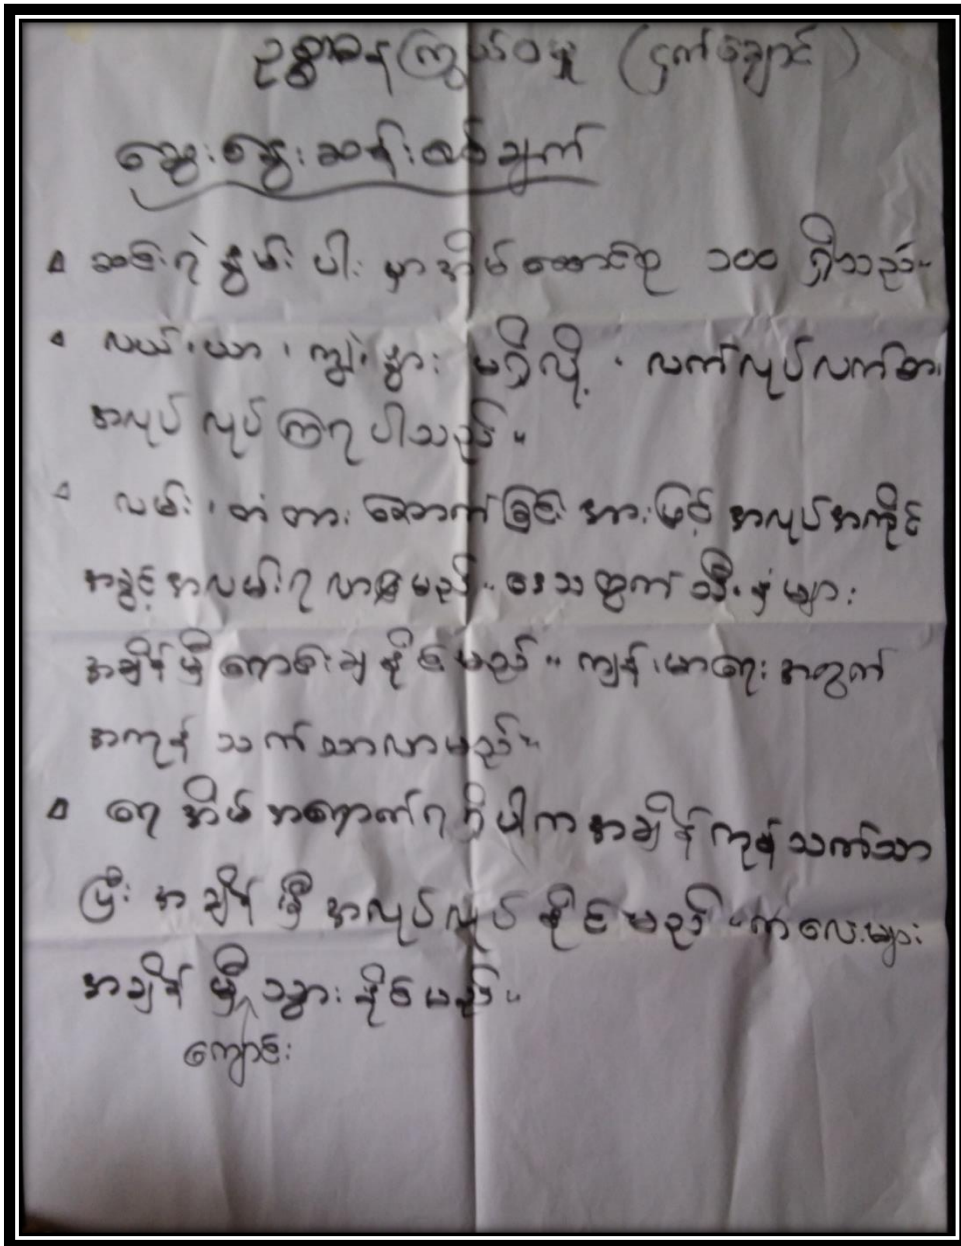 ဥစ္စာဓန ကြွယ်ဝမှု (ငှက်ချောင်း)
ဆွေးနွေးဆန်းစစ်ချက်
ဆင်းရဲ နွမ်း ပါး မှာ အိမ်ထောင်စု ၁၀၀ ရှိသည်။
လယ်၊ ယာ၊ ကျွဲ၊ နွား မရှိလို့၊ လက်လုပ်လက်စား
အလုပ် လုပ်ကြရပါသည်။
လမ်း၊ တံတား ဆောက်ခြင်း အားဖြင့် အလုပ်အကိုင်
အခွင့်အလမ်းရလာမည်။ ဒေသထွက် သီးနှံများ
အချိန်မှီ ရောင်းချနိုင်မည်။ ကျန်းမာရေးအတွက်
အကုန် သက်သာလာမည်။
ရေ အိမ်အရောက်ရရှိပါက အချိန်ကုန်သက်သာ
ပြီး အချိန်မှီ အလုပ်လုပ်နိုင်မည်။ ကလေးများ
အချိန်မှီ သွားနိုင်မည်။
ကျောင်း